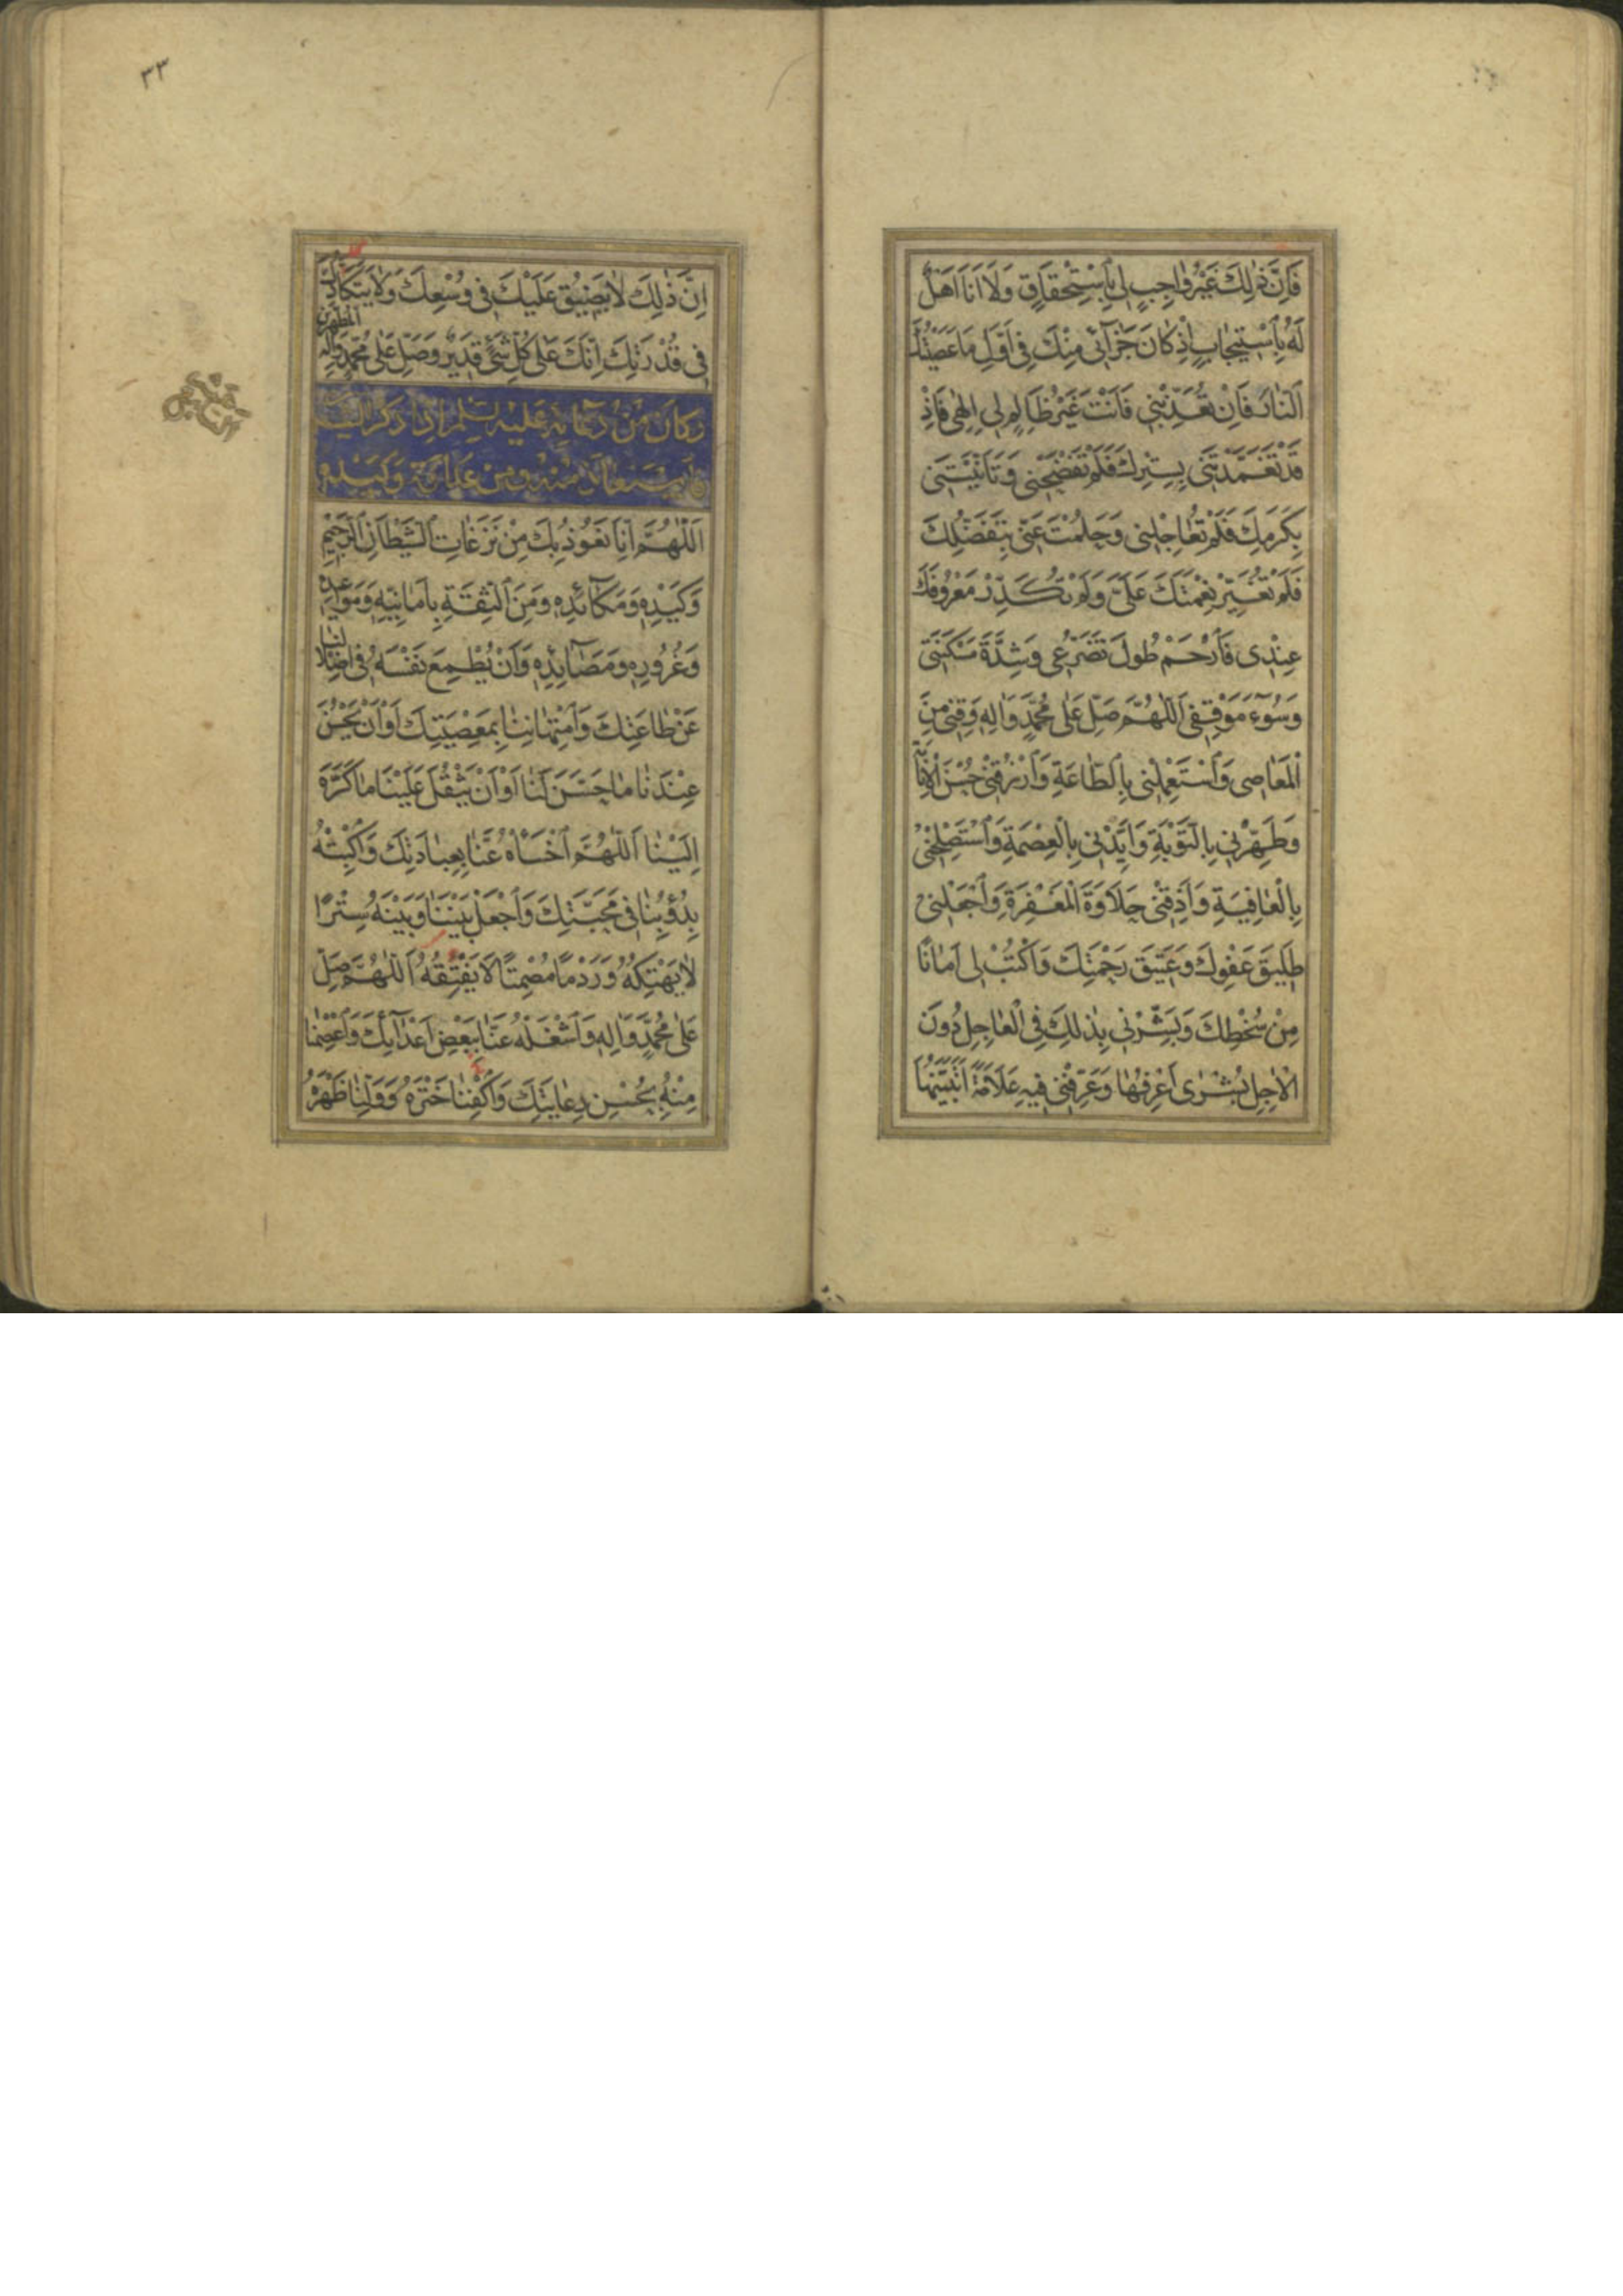 فَاِنَّ ذٰلِكَ غَيْرُ وٰاجِبٍ لِي بِاسْتِحْقَاقٍ وَلَا اَنَا اَهْلٌ
لَهُ بِاسْتِيجٰابٍ اِذْ كَانَ جَزَآئِي مِنْكَ فِي اَوَّلِ مَا عَصَيْتُكَ
اَلنَّارَ فَاِنْ تُعَذِّبْنِي فَاَنْتَ غَيْرُ ظٰالِمٍ لِي اِلٰهِي فَاِذْ
قَدْ تَغَمَّدْتَنِي بِسِتْرِكَ فَلَمْ تَفْضَحْنِي وَتَاَنَّيْتَنِي
بِكَرَمِكَ فَلَمْ تُعٰاجِلْنِي وَحَلُمْتَ عَنِّي بِتَفَضُّلِكَ
فَلَمْ تُغَيِّرْ نِعْمَتَكَ عَلَيَّ وَلَمْ تُكَدِّرْ مَعْرُوفَكَ
عِنْدِي فَارْحَمْ طُولَ تَضَرُّعِي وَشِدَّةَ مَسْكَنَتِي
وَسُوٓءَ مَوْقِفِي اَللّٰهُمَّ صَلِّ عَلٰى مُحَمَّدٍ وَاٰلِهِ وَقِنِي مِنَ
الْمَعَاصِي وَاسْتَعْمِلْنِي بِالطَّاعَةِ وَارْزُقْنِي حُسْنَ الْاِنَابَةِ
وَطَهِّرْنِي بِالتَّوْبَةِ وَاَيِّدْنِي بِالْعِصْمَةِ وَاسْتَصْلِحْنِي
بِالْعٰافِيَةِ وَاَذِقْنِي حَلَاوَةَ الْمَغْفِرَةِ وَاجْعَلْنِي
طَلِيقَ عَفْوِكَ وَعَتِيقَ رَحْمَتِكَ وَاكْتُبْ لِي اَمٰانًا
مِنْ سُخْطِكَ وَبَشِّرْنِي بِذٰلِكَ فِي الْعٰاجِلِ دُونَ
الْاٰجِلِ بُشْرٰى اَعْرِفُهٰا وَعَرِّفْنِي فِيهِ عَلَامَةً اَتَبَيَّنُهَا
٣٣
اِنَّ ذٰلِكَ لَا يَضِيقُ عَلَيْكَ فِي وُسْعِكَ وَلَا يَتَكَأَّدُكَ
فِي قُدْرَتِكَ اِنَّكَ عَلٰى كُلِّ شَيْءٍ قَدِيرٌ وَصَلِّ عَلٰى مُحَمَّدٍ وَاٰلِهِ الطَّاهِرِينَ
وَكَانَ مِنْ دُعَائِهِ عَلَيْهِ السَّلَمُ اِذَا ذَكَرَ الشَّيْطَانَ
فَاسْتَعَاذَ مِنْهُ وَمِنْ عَدَاوَتِهِ وَكَيْدِهِ
اَللّٰهُمَّ اِنَّا نَعُوذُ بِكَ مِنْ نَزَغٰاتِ الشَّيْطَانِ الرَّجِيمِ
وَكَيْدِهِ وَمَكَآئِدِهِ وَمِنَ الثِّقَةِ بِاَمَانِيِّهِ وَمَوَاعِيدِهِ
وَغُرُورِهِ وَمَصَآئِدِهِ وَاَنْ يُطْمِعَ نَفْسَهُ فِي اِضْلَالِنَا
عَنْ طٰاعَتِكَ وَامْتِهٰانِنٰا بِمَعْصِيَتِكَ اَوْ اَنْ يَحْسُنَ
عِنْدَنٰا مٰا حَسَّنَ لَنٰا اَوْ اَنْ يَثْقُلَ عَلَيْنَا مٰا كَرَّهَ
اِلَيْنٰا اَللّٰهُمَّ اخْسَأْهُ عَنّٰا بِعِبٰادَتِكَ وَاكْبِتْهُ
بِدُؤُبِنٰا فِي مَحَبَّتِكَ وَاجْعَلْ بَيْنَنٰا وَبَيْنَهُ سِتْرًا
لَا يَهْتِكُهُ وَرَدْمًا مُصْمِتًا لَا يَفْتِقُهُ اَللّٰهُمَّ صَلِّ
عَلٰى مُحَمَّدٍ وَاٰلِهِ وَاشْغَلْهُ عَنّٰا بِبَعْضِ اَعْدَآئِكَ وَاعْصِمْنٰا
مِنْهُ بِحُسْنِ رِعٰايَتِكَ وَاكْفِنٰا خَتْرَهُ وَوَلِّنٰا ظَهْرَهُ